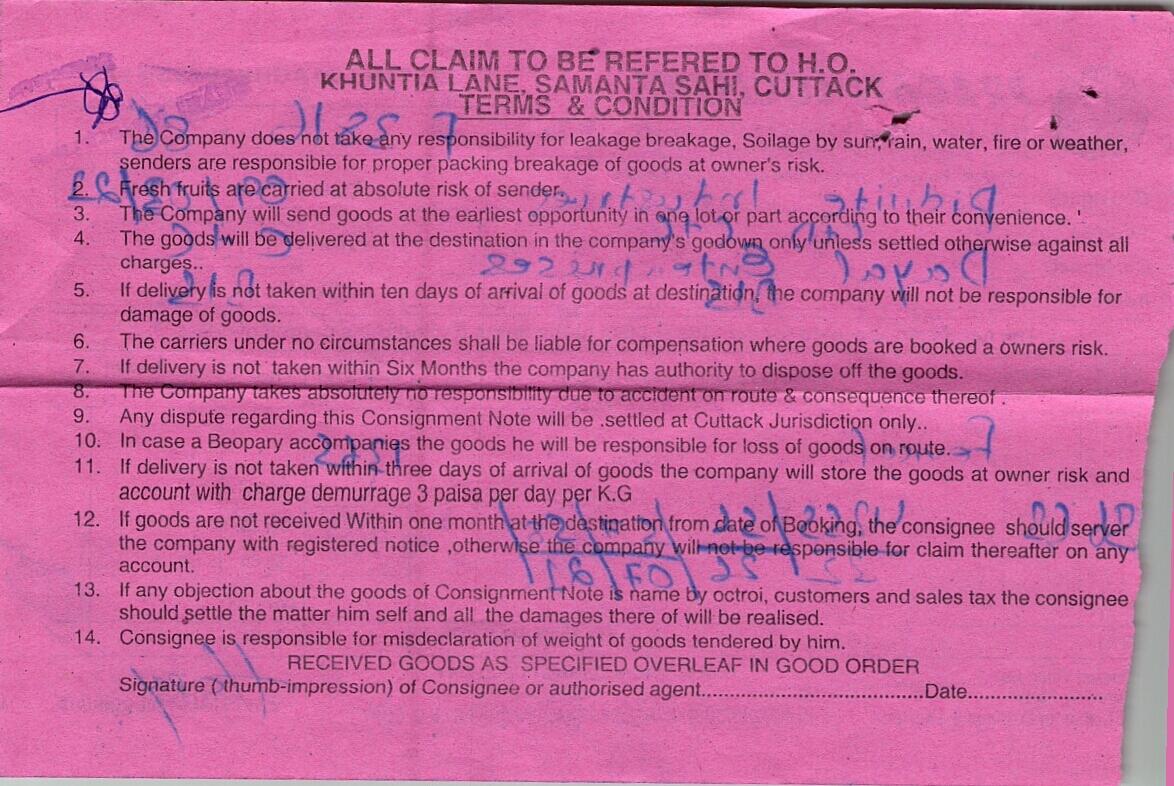 ALL CLAIM TO BE REFERED TO H.O.
KHUNTIA LANE, SAMANTA SAHI, CUTTACK
TERMS & CONDITION
1. The Company does not take any responsibility for leakage breakage, Soilage by sun, rain, water, fire or weather,
senders are responsible for proper packing breakage of goods at owner's risk.
2. Fresh fruits are carried at absolute risk of sender.
3. The Company will send goods at the earliest opportunity in one lot or part according to their convenience.
4. The goods will be delivered at the destination in the company's godown only unless settled otherwise against all
charges..
5. If delivery is not taken within ten days of arrival of goods at destination, the company will not be responsible for
damage of goods.
6. The carriers under no circumstances shall be liable for compensation where goods are booked a owners risk.
7. If delivery is not taken within Six Months the company has authority to dispose off the goods.
8. The Company takes absolutely no responsibility due to accident on route & consequence thereof .
9. Any dispute regarding this Consignment Note will be .settled at Cuttack Jurisdiction only..
10. In case a Beopary accompanies the goods he will be responsible for loss of goods on route.
11. If delivery is not taken within three days of arrival of goods the company will store the goods at owner risk and
account with charge demurrage 3 paisa per day per K.G
12. If goods are not received Within one month at the destination from date of Booking, the consignee should server
the company with registered notice ,otherwise the company will not be responsible for claim thereafter on any
account.
13. If any objection about the goods of Consignment Note is name by octroi, customers and sales tax the consignee
should settle the matter him self and all the damages there of will be realised.
14. Consignee is responsible for misdeclaration of weight of goods tendered by him.
RECEIVED GOODS AS SPECIFIED OVERLEAF IN GOOD ORDER
Signature (thumb-impression) of Consignee or authorised agent.......................................Date.......................